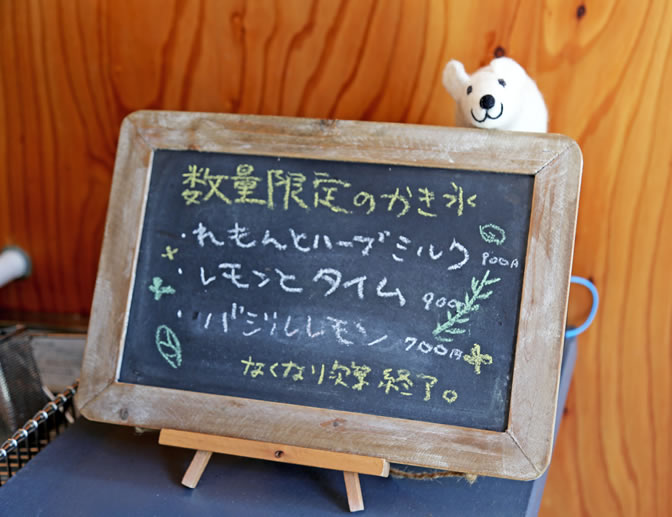 数量限定のかき氷
・れもんとハーブミルク 900円
・レモンとタイム 900
・バジルレモン 700円
なくなり次第終了。